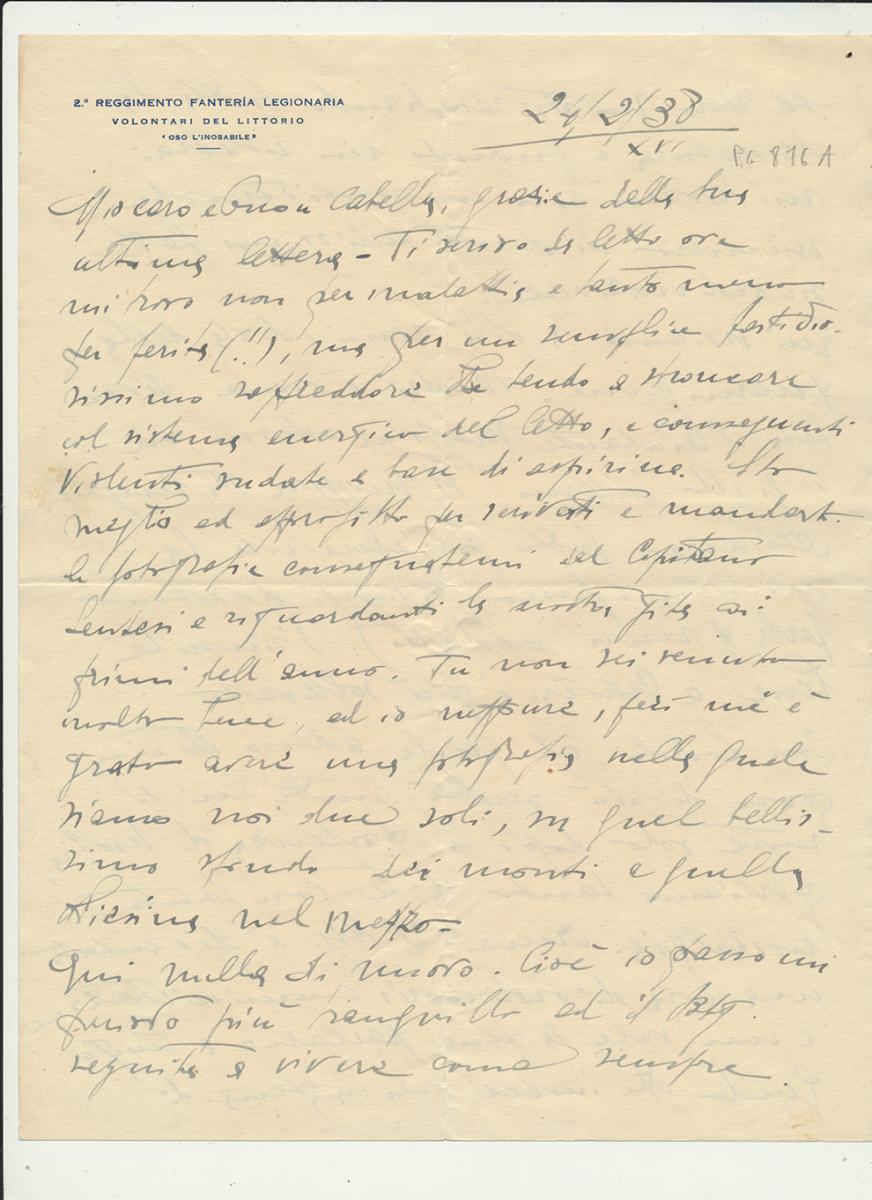 2.º REGGIMENTO FANTERÍA LEGIONARIA
VOLONTARI DEL LITTORIO
"OSO L'INOSABILE"
24/2/38
XVI
PG 816 A
Mio caro e buon Catella, grazie della tua
ultima lettera - Ti scrivo da letto ove
mi trovo non per malattia e tanto meno
per ferita (!!), ma per un semplice fastidio-
sissimo raffreddore che tendo a stroncare
col sistema energico del letto, e conseguenti
violenti sudate a base di aspirina. Sto
meglio ed approfitto per scriverti e mandarti
le fotografie consegnatemi dal Capitano
e riguardanti la nostra gita ai
primi dell'anno. Tu non sei venuto
molto bene, ed io neppure, però mi è
grato avere una fotografia nella quale
siamo noi due soli, su quel bellis-
simo sfondo dei monti e quella
chiesina nel mezzo -
Qui nulla di nuovo. Cioè io passo un
periodo più tranquillo ed il Btg.
seguita a vivere come sempre